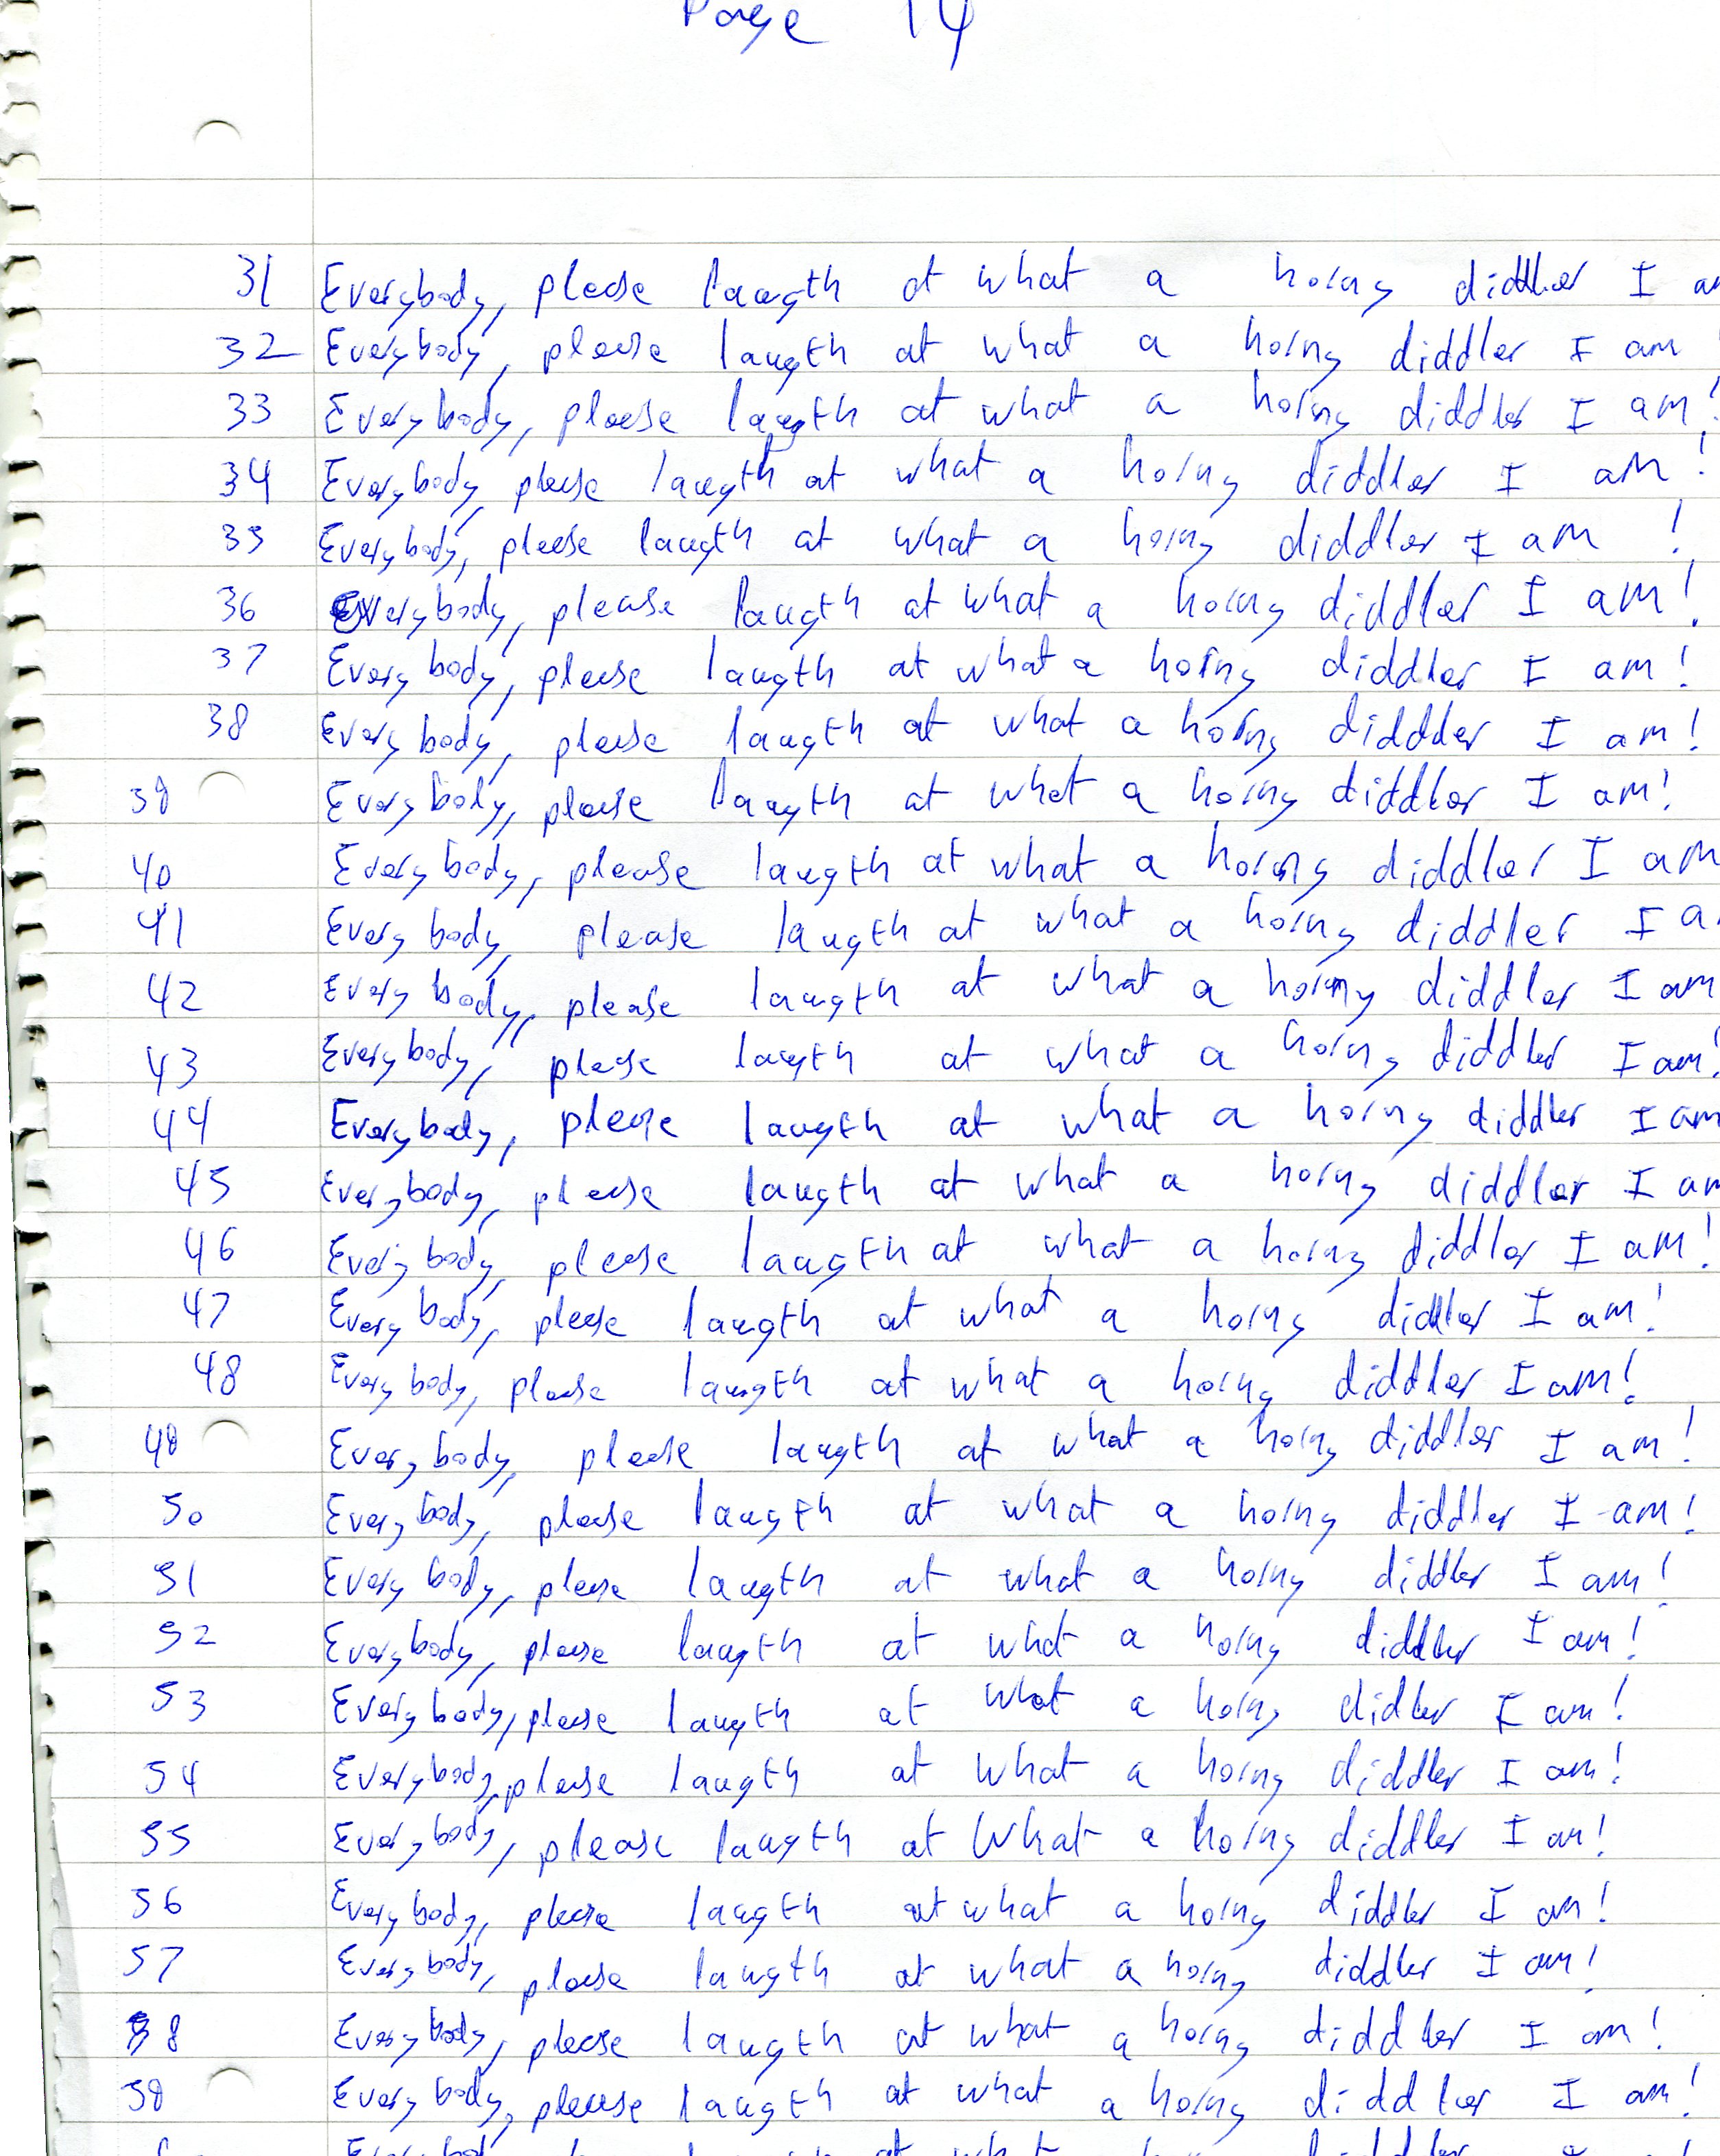 Page 14
31 Everybody, please laugth at what a horny diddler I am
32 Everybody, please laugth at what a horny diddler I am
33 Everybody, please laugth at what a horny diddler I am!
34 Everybody, please laugth at what a horny diddler I am!
35 Everybody, please laugth at what a horny diddler I am !
36 Everybody, please laugth at what a horny diddler I am!
37 Everybody, please laugth at what a horny diddler I am!
38 Everybody, please laugth at what a horny diddler I am!
39 Everybody, please laugth at what a horny diddler I am!
40 Everybody, please laugth at what a horny diddler I am
41 Everybody, please laugth at what a horny diddler I a
42 Everybody, please laugth at what a horny diddler I am
43 Everybody, please laugth at what a horny diddler I am!
44 Everybody, please laugth at what a horny diddler I am
45 Everybody, please laugth at what a horny diddler I am
46 Everybody, please laugth at what a horny diddler I am!
47 Everybody, please laugth at what a horny diddler I am!
48 Everybody, please laugth at what a horny diddler I am!
49 Everybody, please laugth at what a horny diddler I am!
50 Everybody, please laugth at what a horny diddler I am!
51 Everybody, please laugth at what a horny diddler I am!
52 Everybody, please laugth at what a horny diddler I am!
53 Everybody, please laugth at what a horny didler I am!
54 Everybody, please laugth at what a horny diddler I am!
55 Everybody, please laugth at what a horny diddler I am!
56 Everybody, please laugth at what a horny diddler I am!
57 Everybody, please laugth at what a horny diddler I am!
58 Everybody, please laugth at what a horny diddler I am!
59 Everybody, please laugth at what a horny diddler I am!